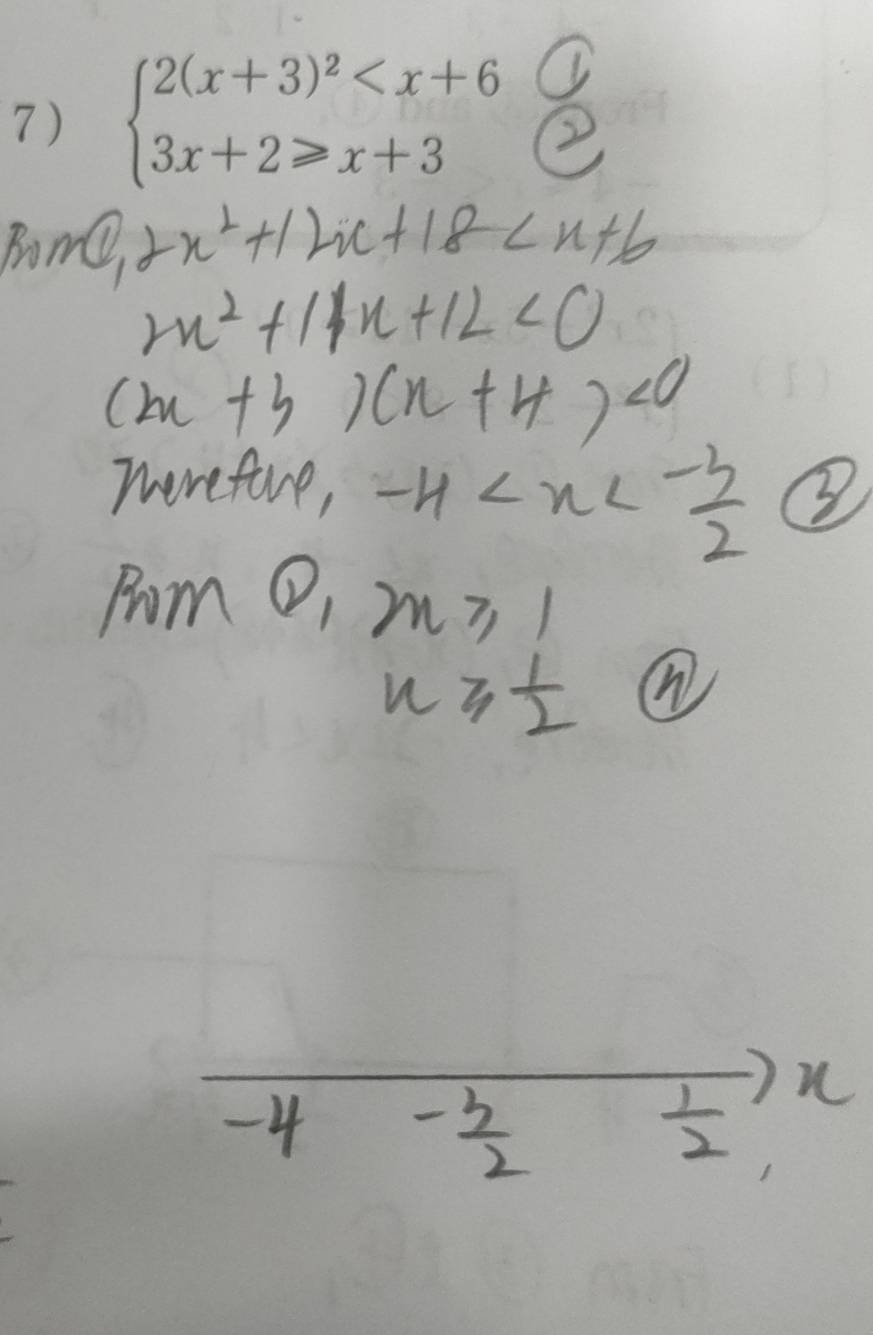 7) { 2(x+3)² < x+6 ①
3x+2 ⩾ x+3 ②
From ①, 2x²+12x+18 < x+6
2x²+11x+12 < 0
(2x+3)(x+4) < 0
Therefore, -4 < x < -3/2 ③
From ②, 2x ⩾ 1
x ⩾ 1/2 ④
-4 -3/2 1/2 x